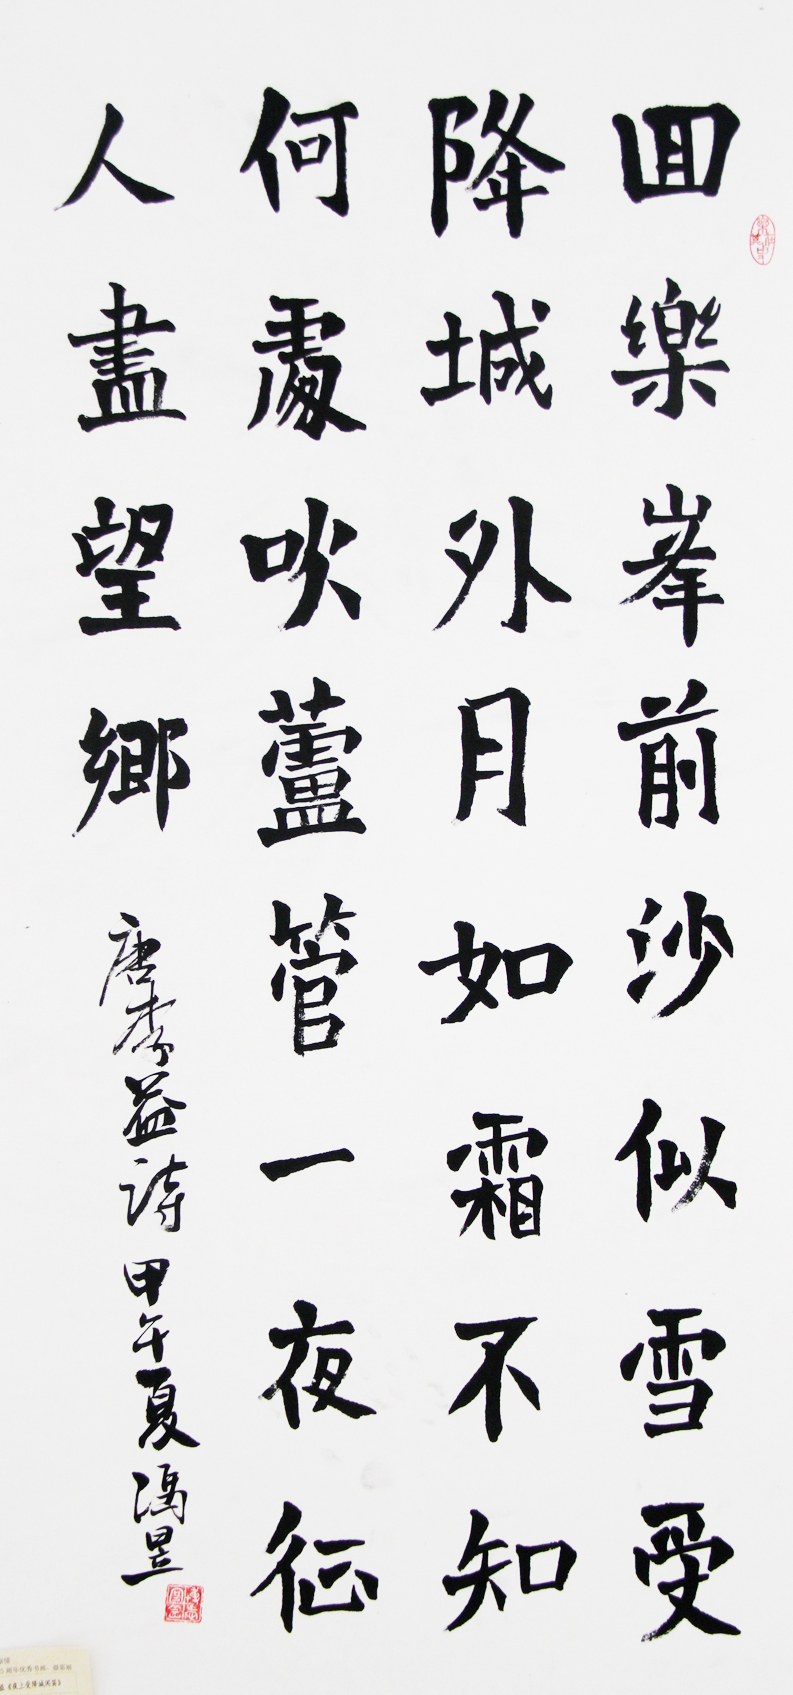 回樂峯前沙似雪受
降城外月如霜不知
何處吹蘆管一夜征
人盡望鄉
唐李益詩甲午夏馮昱